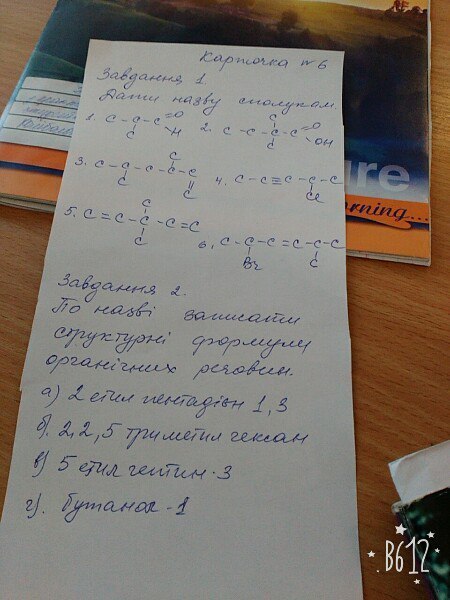 Карточка №6
Завдання 1.
Дати назву сполукам
1. C-C-C=O
C
H
2. C-C-C-C=O
C
C
OH
3. C-C-C-C-C
C
C
C
4. C-C≡C-C-C
Cl
5. C=C-C-C=C
C
C
6. C-C-C=C-C-C
Br
C
Завдання 2.
По назві записати
структурні формули
органічних речовин.
а) 2 етил пентадієн 1,3
б). 2,2,5 триметил гексан
в) 5 етил гептин-3
г). бутанол-1
ure
rning...
B612